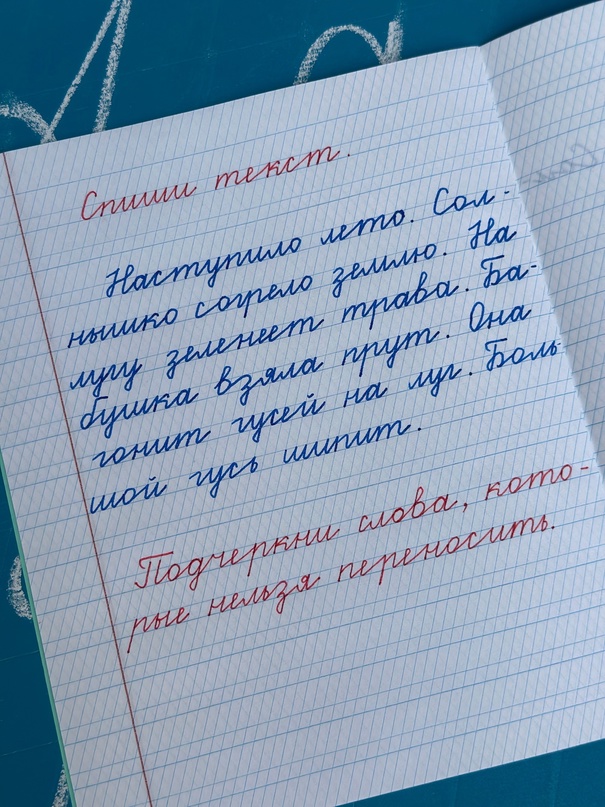 Спиши текст.
Наступило лето. Сол-
нышко согрело землю. На
лугу зеленеет трава. Ба-
бушка взяла прут. Она
гонит гусей на луг. Боль
шой гусь шипит.
Подчеркни слова, кото-
рые нельзя переносить.